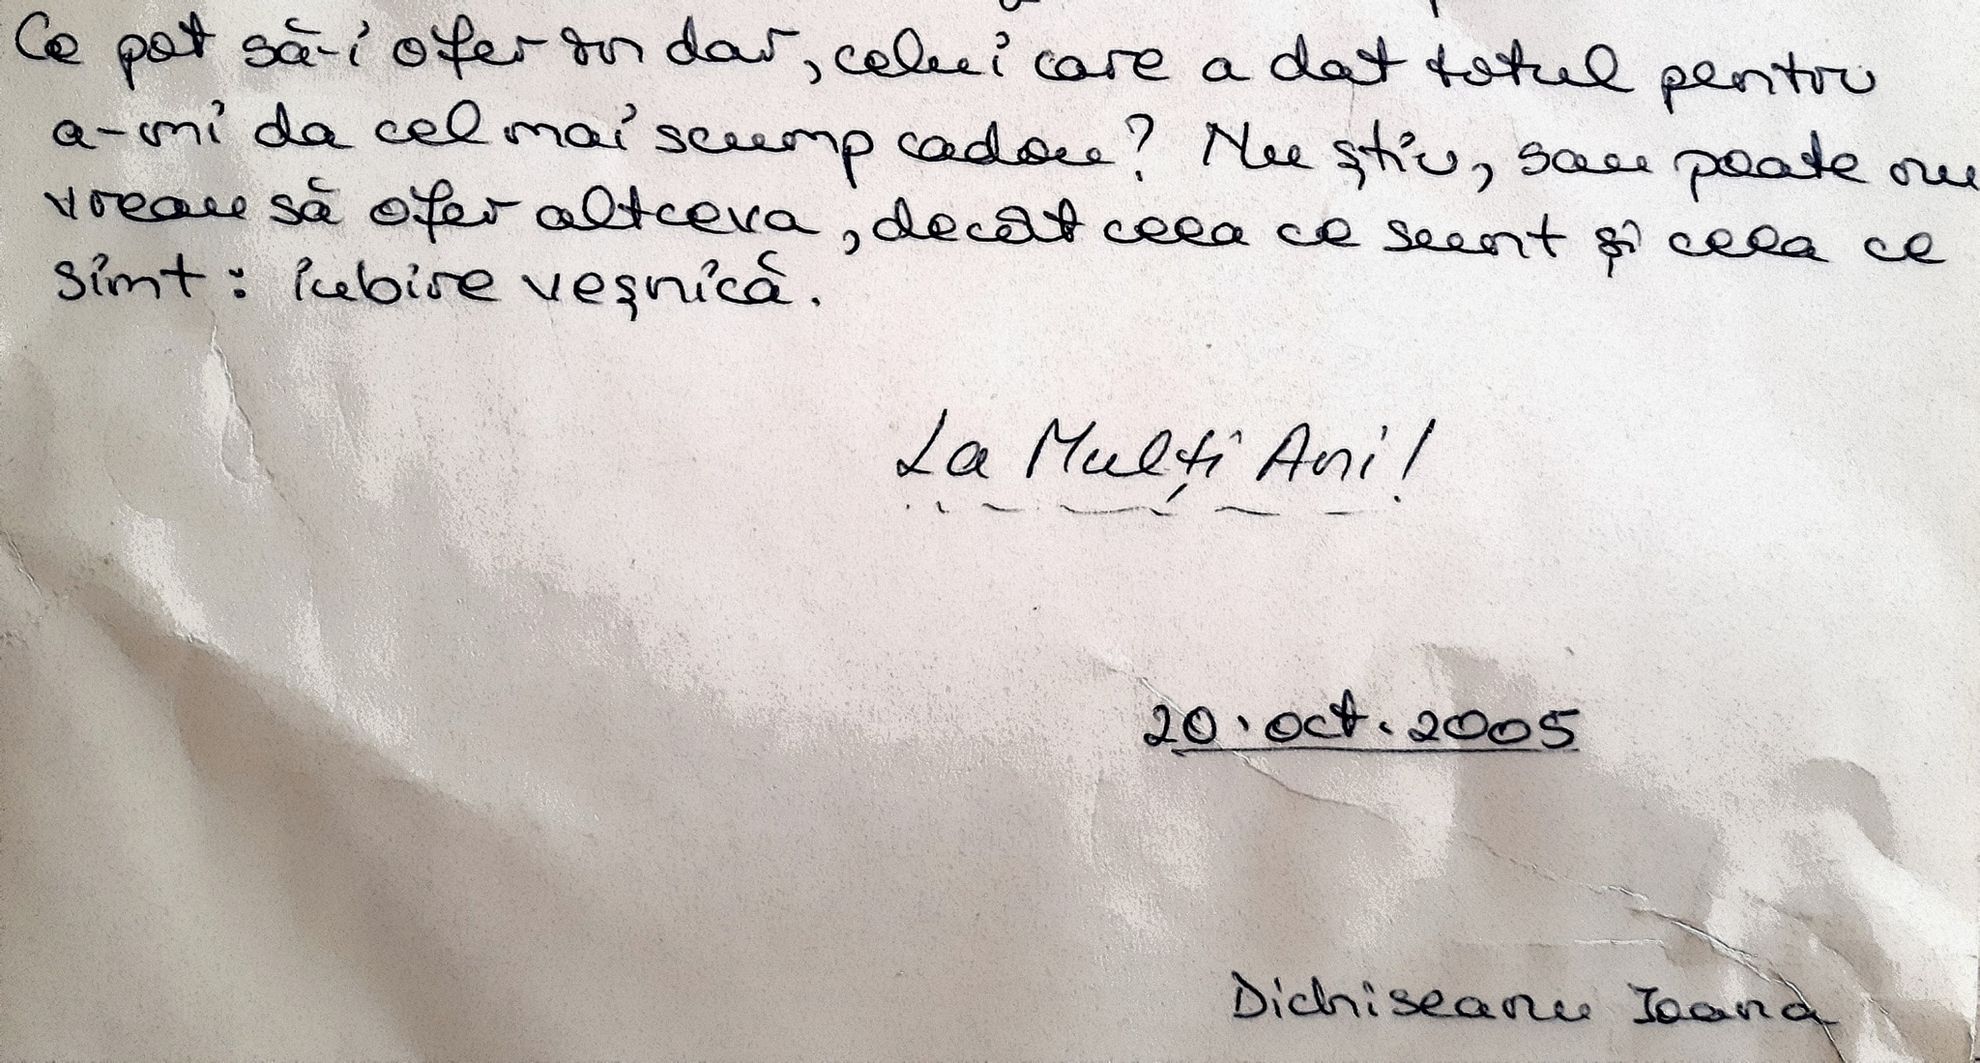 Ce pot să-i ofer în dar, celui care a dat totul pentru
a-mi da cel mai scump cadou? Nu ştiu, sau poate nu
vreau să ofer altceva, decât ceea ce sunt şi ceea ce
simt: iubire veşnică.
La Mulţi Ani!
20.oct.2005
Dichiseanu Ioana